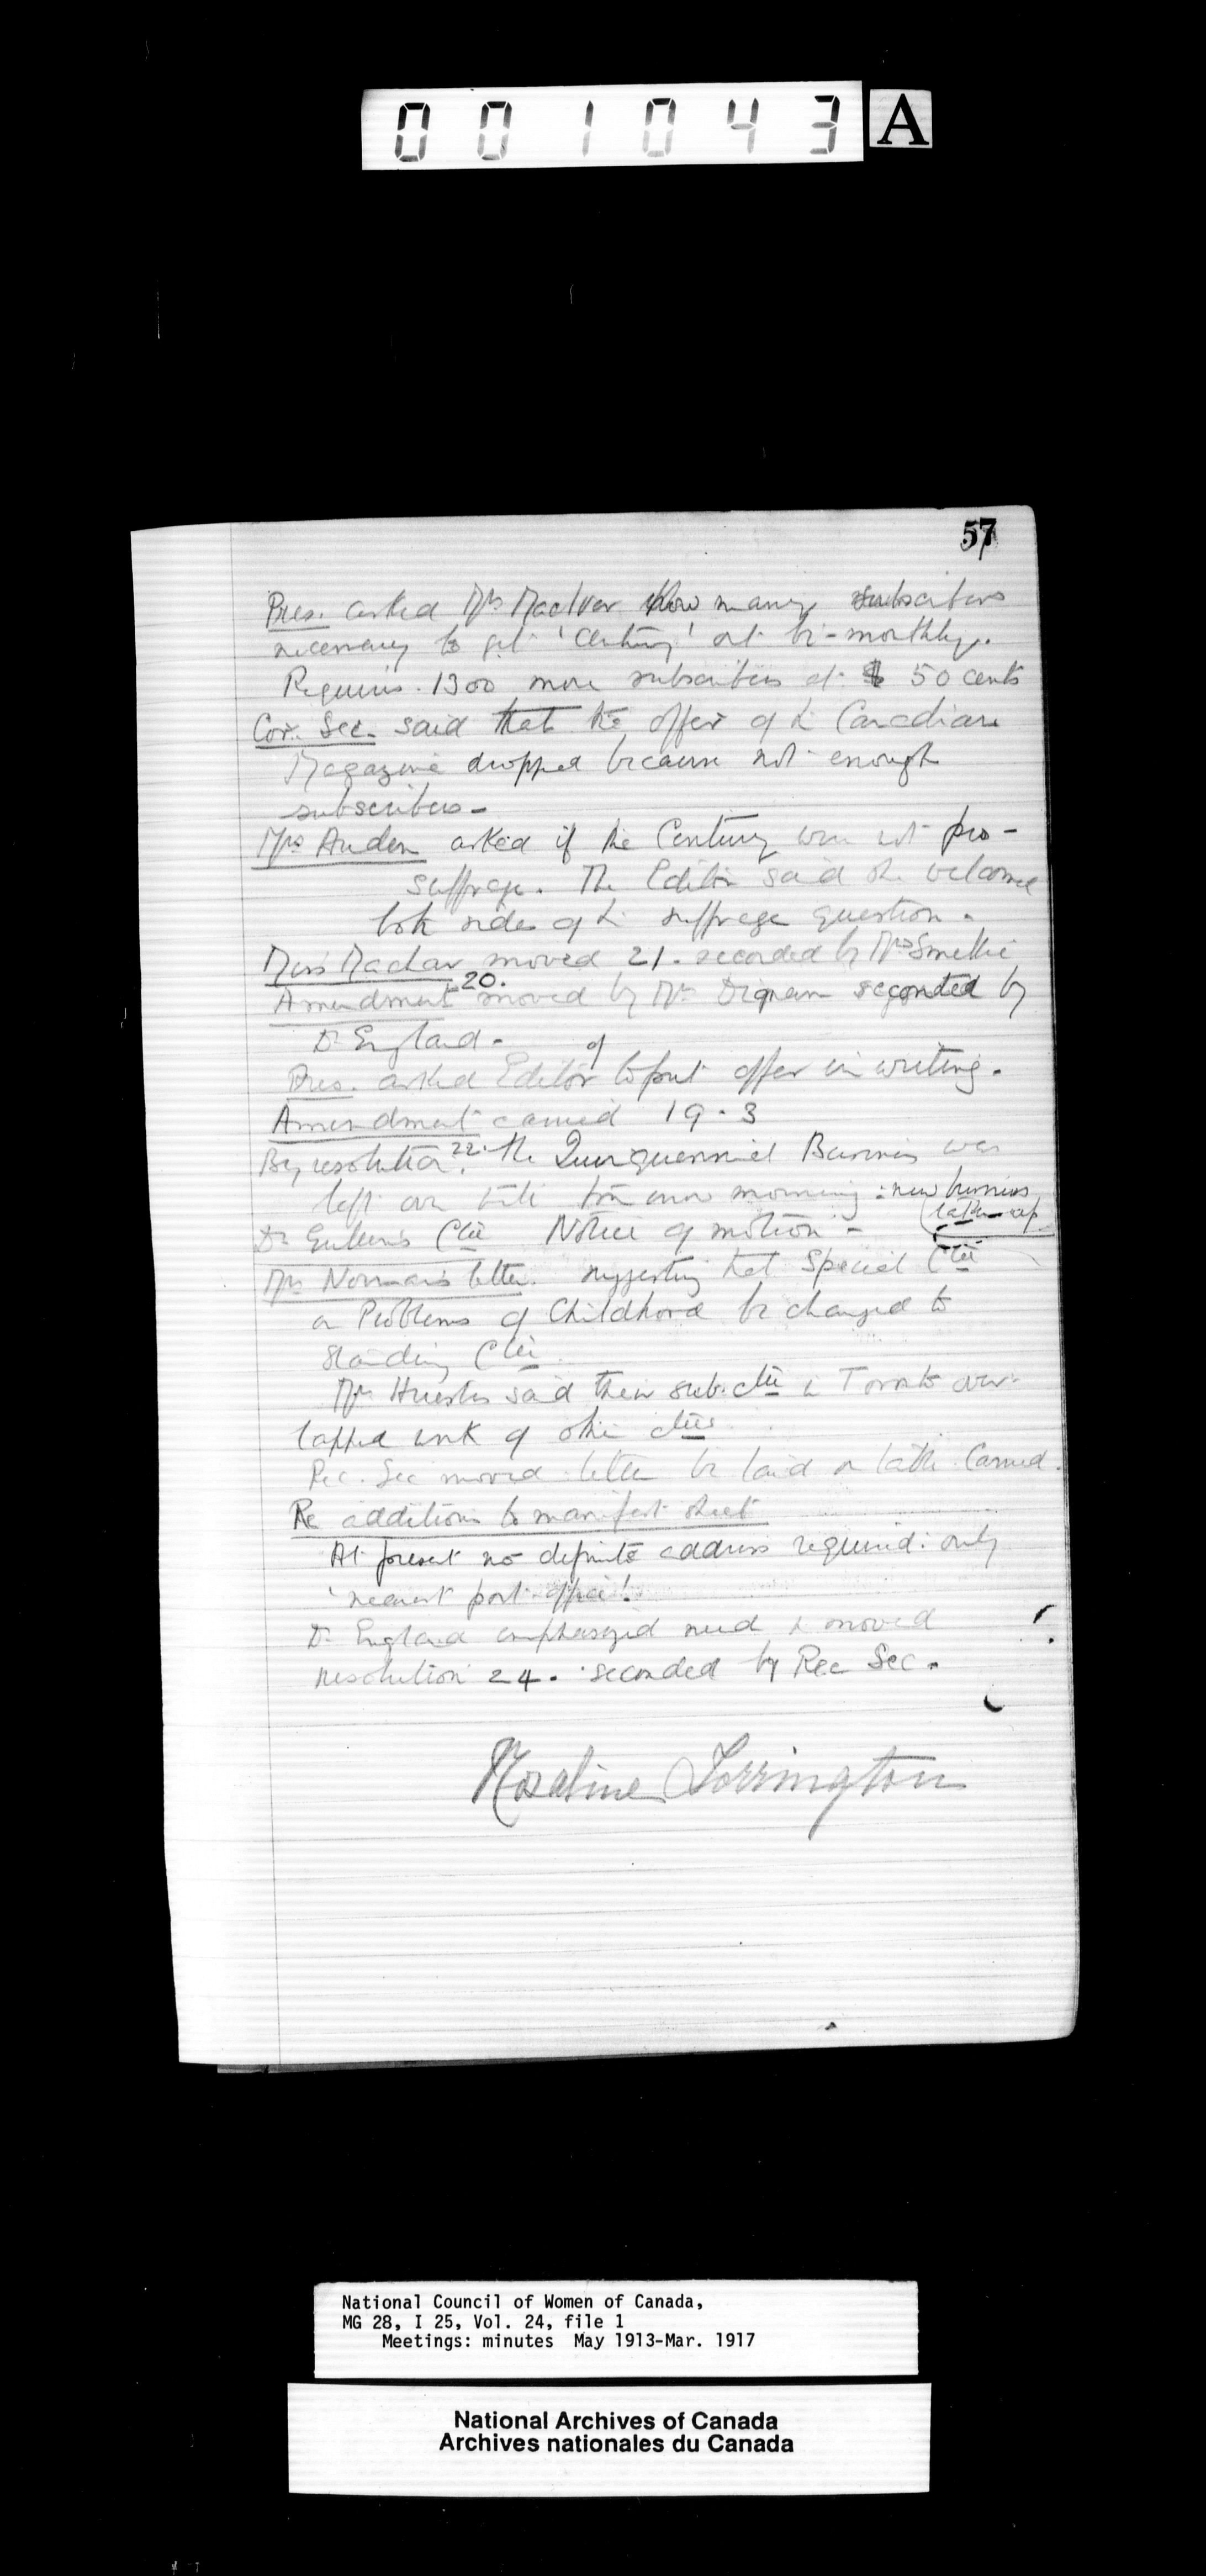 001043 A
57
Pres. asked Mrs MacIver how many subscribers
necessary to get 'Century' out bi-monthly.
Requires 1300 more subscribers at 50 cents
Cor. Sec. said that the offer of the Canadian
Magazine dropped because not enough
subscribers-
Mrs Auden asked if the Century was not pro-
suffrage. The Editor said she welcomed
both sides of the suffrage question.
Miss Machar moved 21. seconded by Mrs Smellie
Amendment 20. moved by Mrs Dignam seconded by
Dr England.
Pres. asked Editor to put offer in writing.
Amendment carried 19-3
By resolution 22. the Quinquennial Business was
left over till tomorrow morning: new business
taken up
Dr Cttee Notice of motion -
Mrs Norman's letter. suggesting that Special Cttee
on Problems of Childhood be changed to
Standing Cttee.
Mrs Huestis said their sub. cttee in Toronto over-
lapped work of other cttees
Rec. Sec moved letter be laid on table. Carried.
Re additions to manifest sheet
At present no definite address required: only
'nearest post-office'.
Dr England emphasized need & moved
resolution 24. seconded by Rec Sec.
Rosaline Torrington
National Council of Women of Canada,
MG 28, I 25, Vol. 24, file 1
Meetings: minutes May 1913-Mar. 1917
National Archives of Canada
Archives nationales du Canada